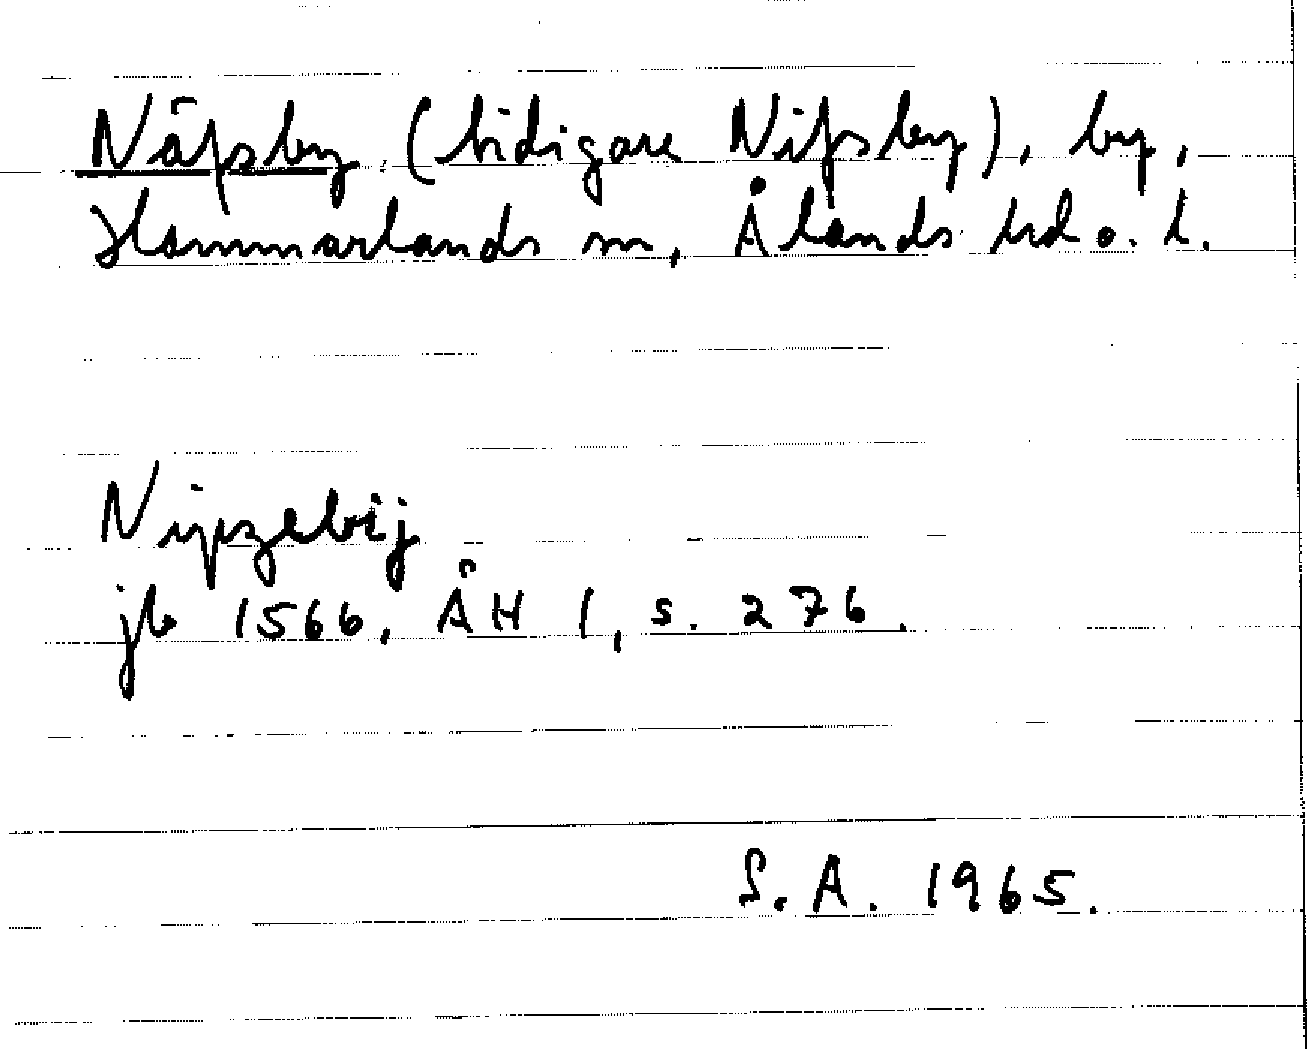 Näfsby (tidigare Nifsby), by,
Hammarlands sn, Ålands hd o. l.
Nipzebij
jb 1566, ÅH I, s. 276.
S.A. 1965.